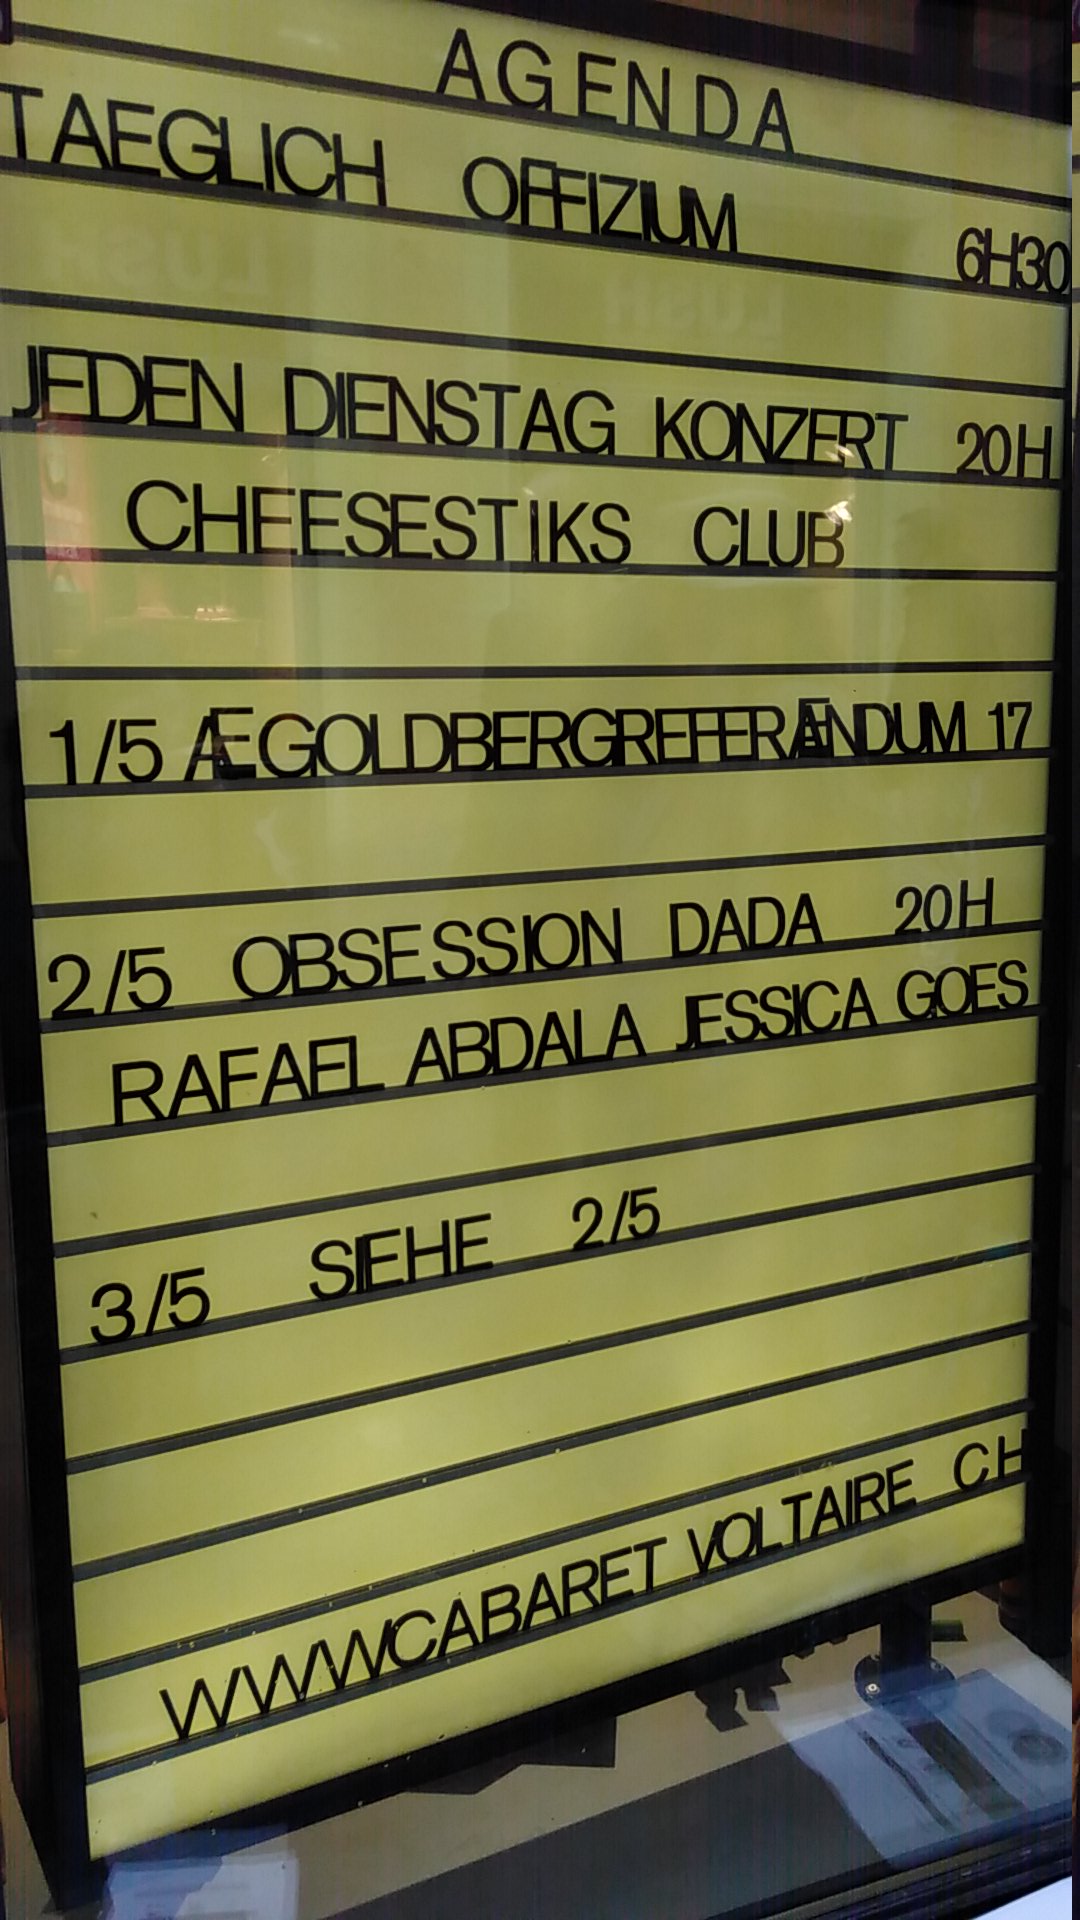 AGENDA
TAEGLICH OFFIZIUM 6H30
JEDEN DIENSTAG KONZERT 20H
CHEESESTIKS CLUB
1/5 ÆGOLDBERGREFERÆNDUM 17
2/5 OBSESSION DADA 20H
RAFAEL ABDALA JESSICA GOES
3/5 SIEHE 2/5
WWWCABARET VOLTAIRE CH